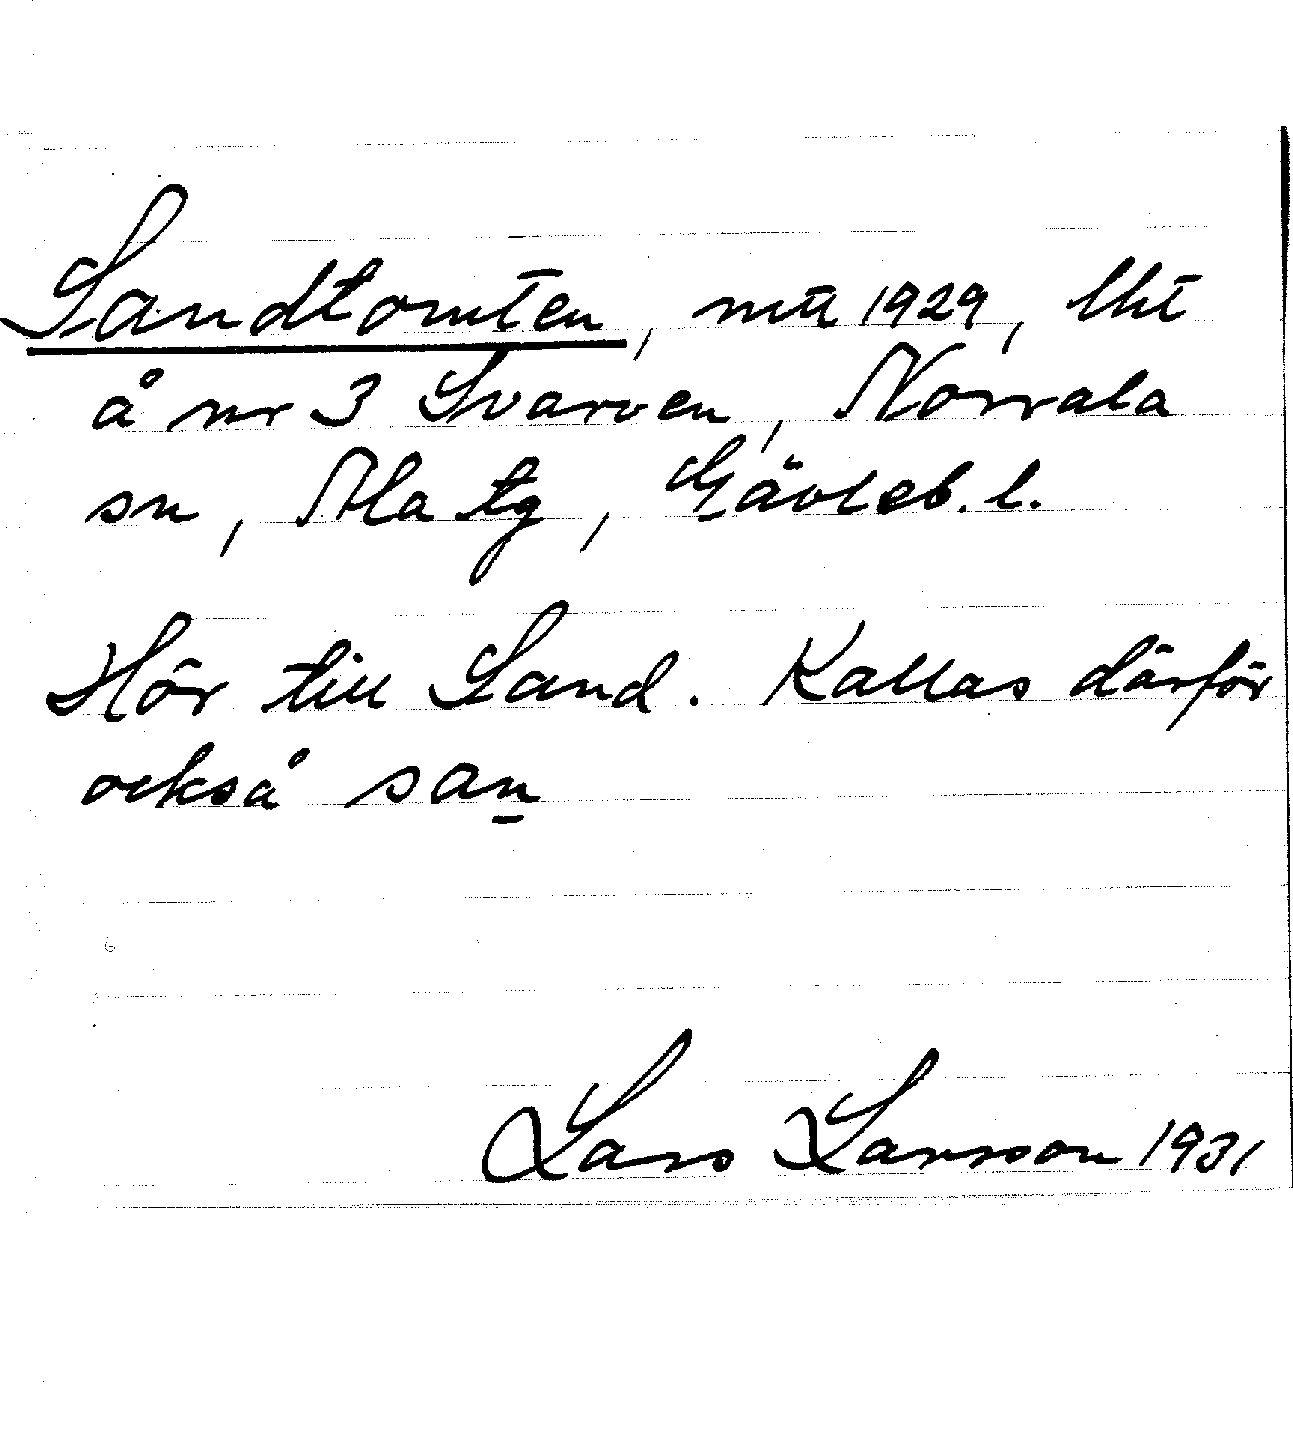 Sandtomten, mtl 1929, lht
å nr 3 Svarven, Norrala
sn, Ala tg, Gävleb. l.
Hör till Sand. Kallas därför
också san̲
Lars Larsson 1931